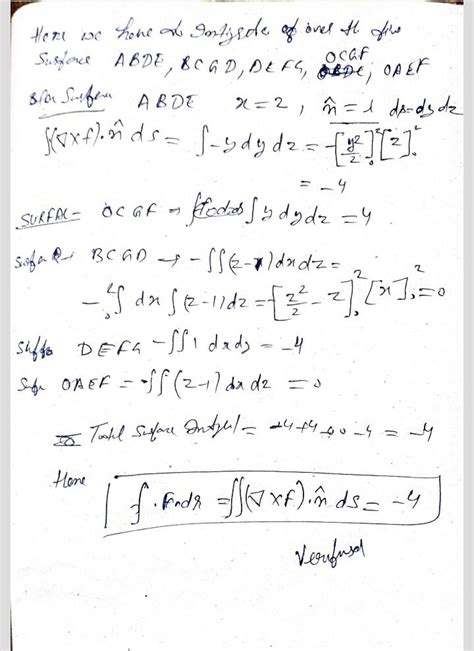 Here we have to Integrate of over the five
Surface ABDE, BCGD, DEFG, OCGF, OAEF
For Surface ABDE x=2, n̂ = i ds=dydz
∫(∇×f)·n̂ ds = ∫-y dy dz = -[y²/2]₀² [z]₀²
= -4
SURFAC- OCGF → ∫y dy dz = 4
Surface BCGD → -∫∫(z-1) dx dz =
-₀²∫ dx ∫(z-1) dz = [z²/2 - z]₀² [x]₀² = 0
DEFG -∫∫1 dx dy = -4
OAEF = -∫∫(z-1) dx dz = 0
Total Surface Integral = -4+4+0-4 = -4
Hene
∫·F dr = ∫∫(∇×f)·n̂ ds = -4
Verified